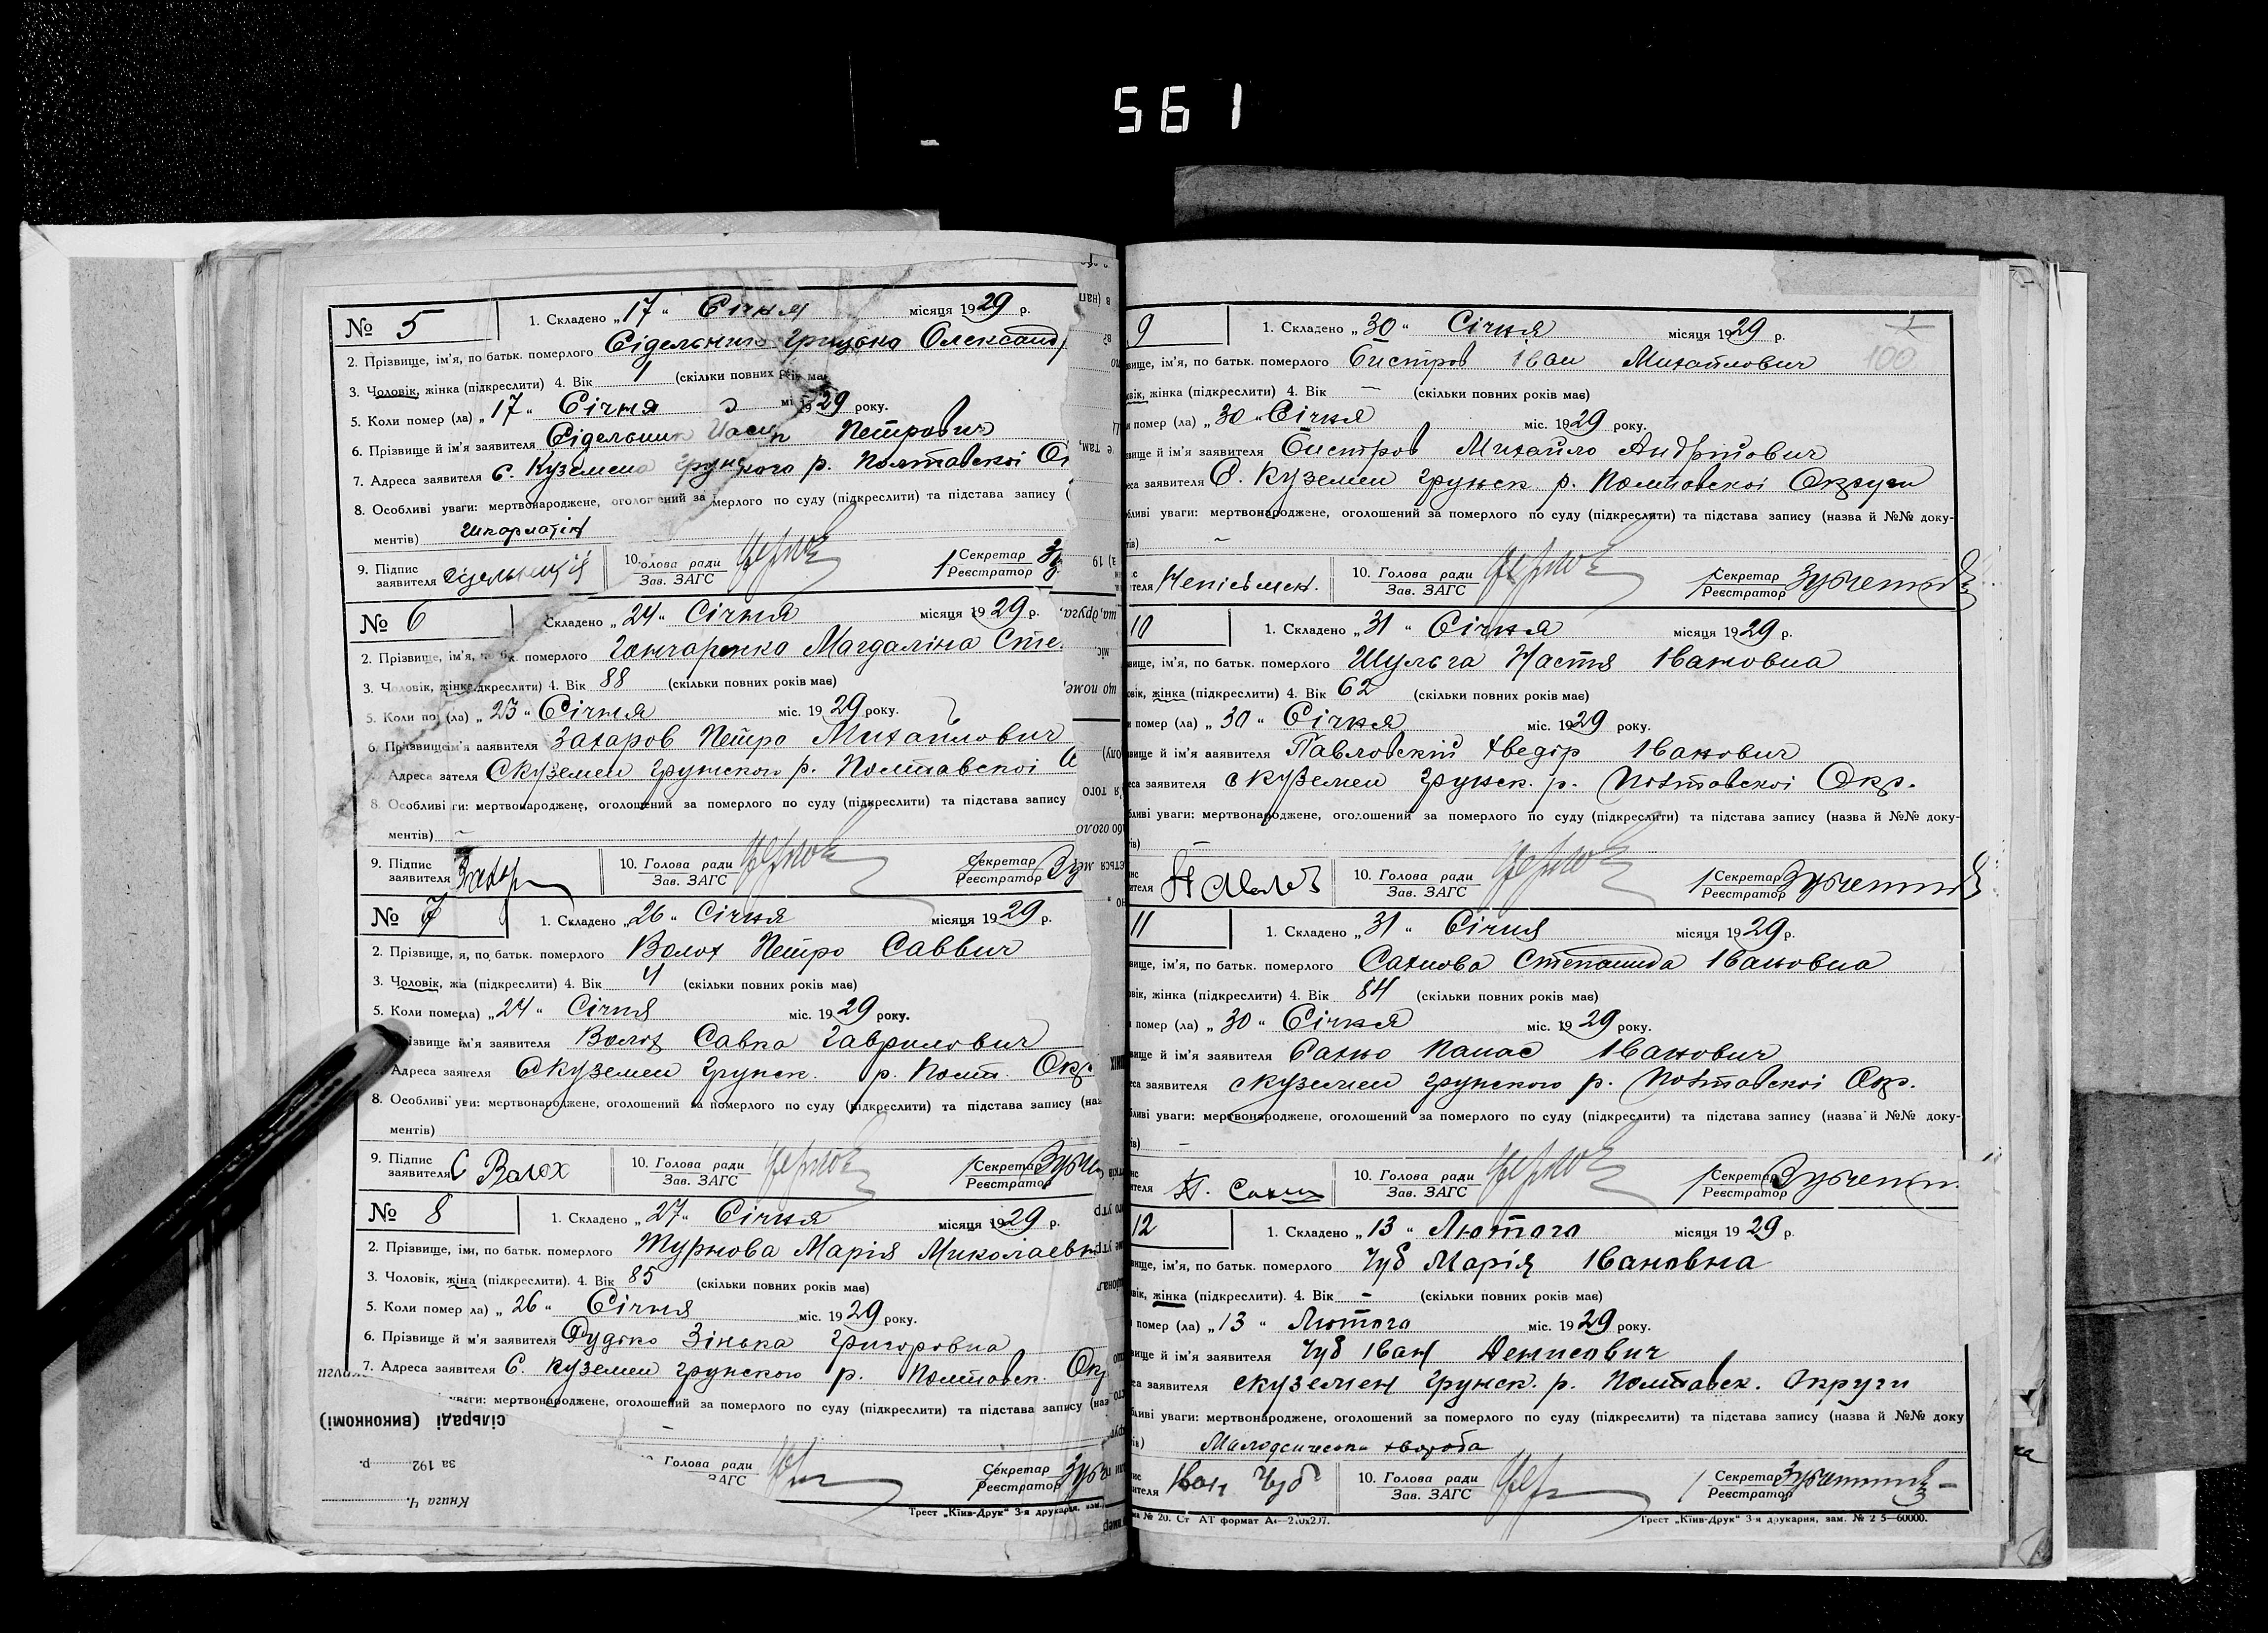 561
№ 5
1. Складено „17“ Січня місяця 1929 р.
2. Прізвище, ім'я, по батьк. померлого Сідельник Грицько Олександ
3. Чоловік, жінка (підкреслити) 4. Вік 1 (скільки повних років має
5. Коли помер (ла) „17“ Січня міс. 1929 року.
6. Прізвище й ім'я заявителя Сідельник Йосип Петрович
7. Адреса заявителя С. Куземено Грунського р. Полтавської Ок
8. Особливі уваги: мертвонароджене, оголошений за мерлого по суду (підкреслити) та підстава запису (
ментів) Шкарлатін
9. Підпис заявителя
10. Голова ради
Зав. ЗАГС
Секретар
Реєстратор
№ 6
Складено „24“ Січня місяця 1929 р.
2. Прізвище, ім'я, по бк. померлого Гончаренко Магдаліна Сте
3. Чоловік, жінка підкреслити) 4. Вік 88 (скільки повних років має)
5. Коли по (ла) „23“ Січня міс. 1929 року.
6. Прізвище ім'я заявителя Захаров Петро Михайлович
Адреса зателя С Куземен Грунського р. Полтавскоі О
8. Особливі ги: мертвонароджене, оголошений за померлого по суду (підкреслити) та підстава запису
ментів) –
9. Підпис заявителя Захар
10. Голова ради
Зав. ЗАГС
Секретар
Реєстратор
№ 7
1. Складено „26“ Січня місяця 1929 р.
2. Прізвище, я, по батьк. померлого Волох Петро Саввич
3. Чоловік, жа (підкреслити) 4. Вік 4 (скільки повних років має)
5. Коли помела) „24“ Січня міс. 1929 року.
різвище ім'я заявителя Волох Савка Гаврилович
Адреса заявеля С Куземен Грунск. р. Полт. Окр
8. Особливі уги: мертвонароджене, оголошений за померлого по суду (підкреслити) та підстава запису (наз
ментів)
9. Підпис заявителя С Волох
10. Голова ради
Зав. ЗАГС
Секретар
Реєстратор
№ 8
1. Складено „27“ Січня місяця 1929 р.
2. Прізвище, імя, по батьк. померлого Журнова Марія Миколаевн
3. Чоловік, жіна (підкреслити). 4. Вік 85 (скільки повних років має)
5. Коли помер ла) „26“ Січня міс. 1929 року.
6. Прізвище й м'я заявителя Дудко Зінька Григоровна
7. Адреса заявителя С. Куземен Грунского р. Полтавск. Окр
уваги: мертвонароджене, оголошений за померлого по суду (підкреслити) та підстава запису (наз
Голова ради
ЗАГС
Секретар
Реєстратор
Трест „Київ-Друк“ 3-я друкарня, зам.
сільраді (виконкомі)
за 192 р.
Книга Ч.
9
1. Складено „30“ Січня місяця 1929 р.
100
вище, ім'я, по батьк. померлого Бистров Іван Михайлович
овік, жінка (підкреслити) 4. Вік – (скільки повних років має)
помер (ла) „30“ Січня міс. 1929 року.
вище й ім'я заявителя Бистров Михайло Андрійович
еса заявителя С. Куземен Грунск р. Полтавскоі Округи
бливі уваги: мертвонароджене, оголошений за померлого по суду (підкреслити) та підстава запису (назва й №№ доку-
ів) –
ителя Неписьмен.
10. Голова ради
Зав. ЗАГС
Секретар
Реєстратор
10
1. Складено „31“ Січня місяця 1929 р.
вище, ім'я, по батьк. померлого Шульга Настя Івановна
овік, жінка (підкреслити) 4. Вік 62 (скільки повних років має)
помер (ла) „30“ Січня міс. 1929 року.
вище й ім'я заявителя Павловскій Хведір Іванович
еса заявителя с Куземен Грунск. р. Полтавскоі Окр.
бливі уваги: мертвонароджене, оголошений за померлого по суду (підкреслити) та підстава запису (назва й №№ доку-
ів) –
ителя
10. Голова ради
Зав. ЗАГС
Секретар
Реєстратор
11
1. Складено „31“ Січня місяця 1929 р.
вище, ім'я, по батьк. померлого Сахнова Степанида Івановна
овік, жінка (підкреслити) 4. Вік 84 (скільки повних років має)
помер (ла) „30“ Січня міс. 1929 року.
вище й ім'я заявителя Сахно Панас Іванович
еса заявителя с Куземен Грунского р. Полтавскоі Окр.
бливі уваги: мертвонароджене, оголошений за померлого по суду (підкреслити) та підстава запису (назва й №№ доку-
ів) –
ителя П. Сахно
10. Голова ради
Зав. ЗАГС
Секретар
Реєстратор
12
1. Складено „13“ Лютого місяця 1929 р.
вище, ім'я, по батьк. померлого Чуб Марія Івановна
овік, жінка (підкреслити). 4. Вік – (скільки повних років має)
помер (ла) „13“ Лютого міс. 1929 року.
вище й ім'я заявителя Чуб Іван Денисович
са заявителя с Куземен Грунск. р. Полтавск. Округи
бливі уваги: мертвонароджене, оголошений за померлого по суду (підкреслити) та підстава запису (назва й №№ доку
ів) хвороба
ителя Іван Чуб
10. Голова ради
Зав. ЗАГС
Секретар
Реєстратор
ма № 20. Ст АТ формат
Трест „Київ-Друк“ 3-я друкарня, зам. № 2 5—60000.